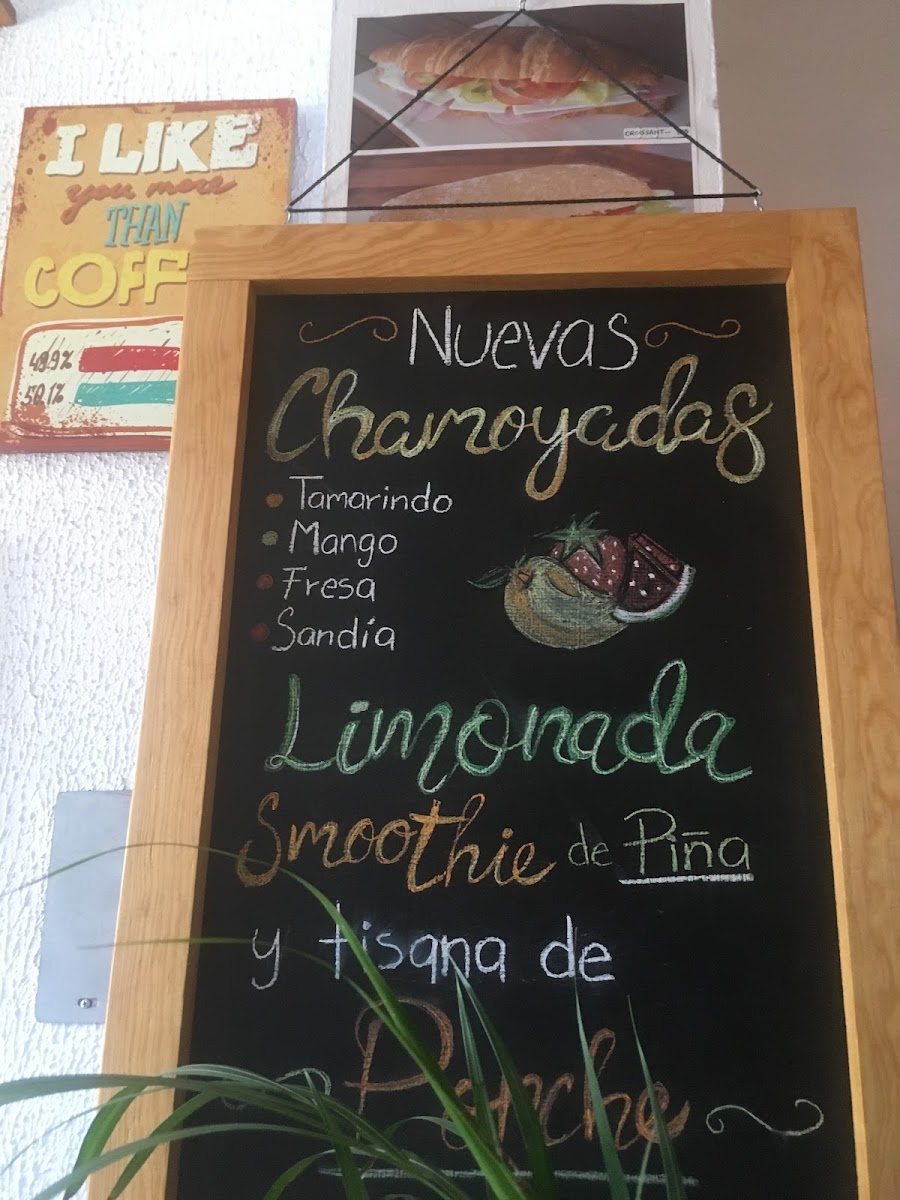 I LIKE
you more
THAN
COFF
49.9%
50.1%
CROISSANT
Nuevas
Chamoyadas
• Tamarindo
• Mango
• Fresa
• Sandía
Limonada
Smoothie de Piña
y tisana de
Ponche